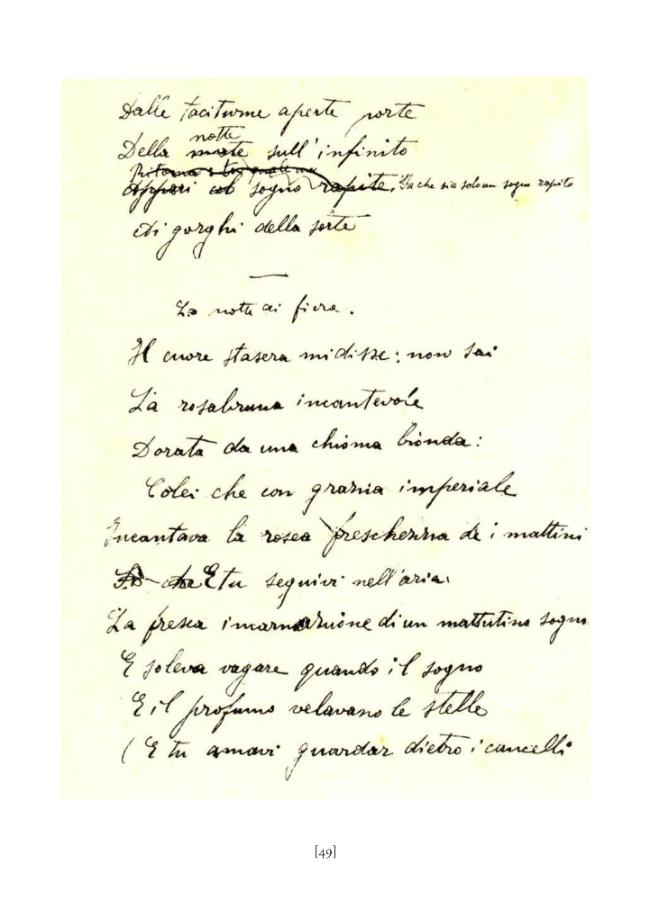 Dalle taciturne aperte porte
notte
Della morte sull'infinito
Ritorna
Appari col sogno rapito. Fa che sia solo un sogno rapito
Ai gorghi della sorte
—
La notte di fiera.
Il cuore stasera mi disse: non sai
La rosabruna incantevole
Dorata da una chioma bionda:
Colei che con grazia imperiale
Incantava la rosea freschezza dei mattini
E tu seguivi nell'aria
La fresca incarnazione di un mattutino sogno
E soleva vagare quando il sogno
E il profumo velavano le stelle
(E tu amavi guardar dietro i cancelli
[49]